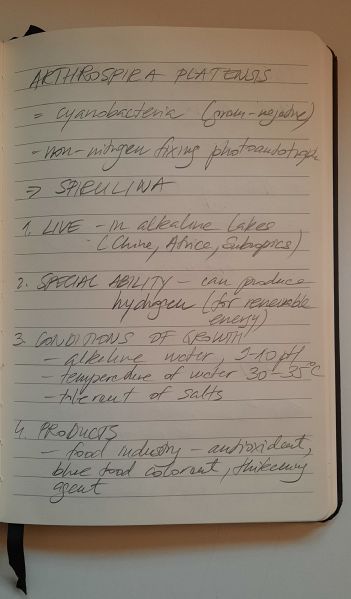 ARTHROSPIRA PLATENSIS
= cyanobacteria (gram-negative)
- non-nitrogen fixing photoautotroph
⇒ SPIRULINA
1. LIVE - in alkaline lakes
(China, Africa, Subtropics)
2. SPECIAL ABILITY - can produce
hydrogen (for renewable
energy)
3. CONDITIONS OF GROWTH
- alkaline water, 9-10 pH
- temperature of water 30-35°C
- tolerant of salts
4. PRODUCTS
- food industry - antioxidant,
blue food colorant, thickening
agent